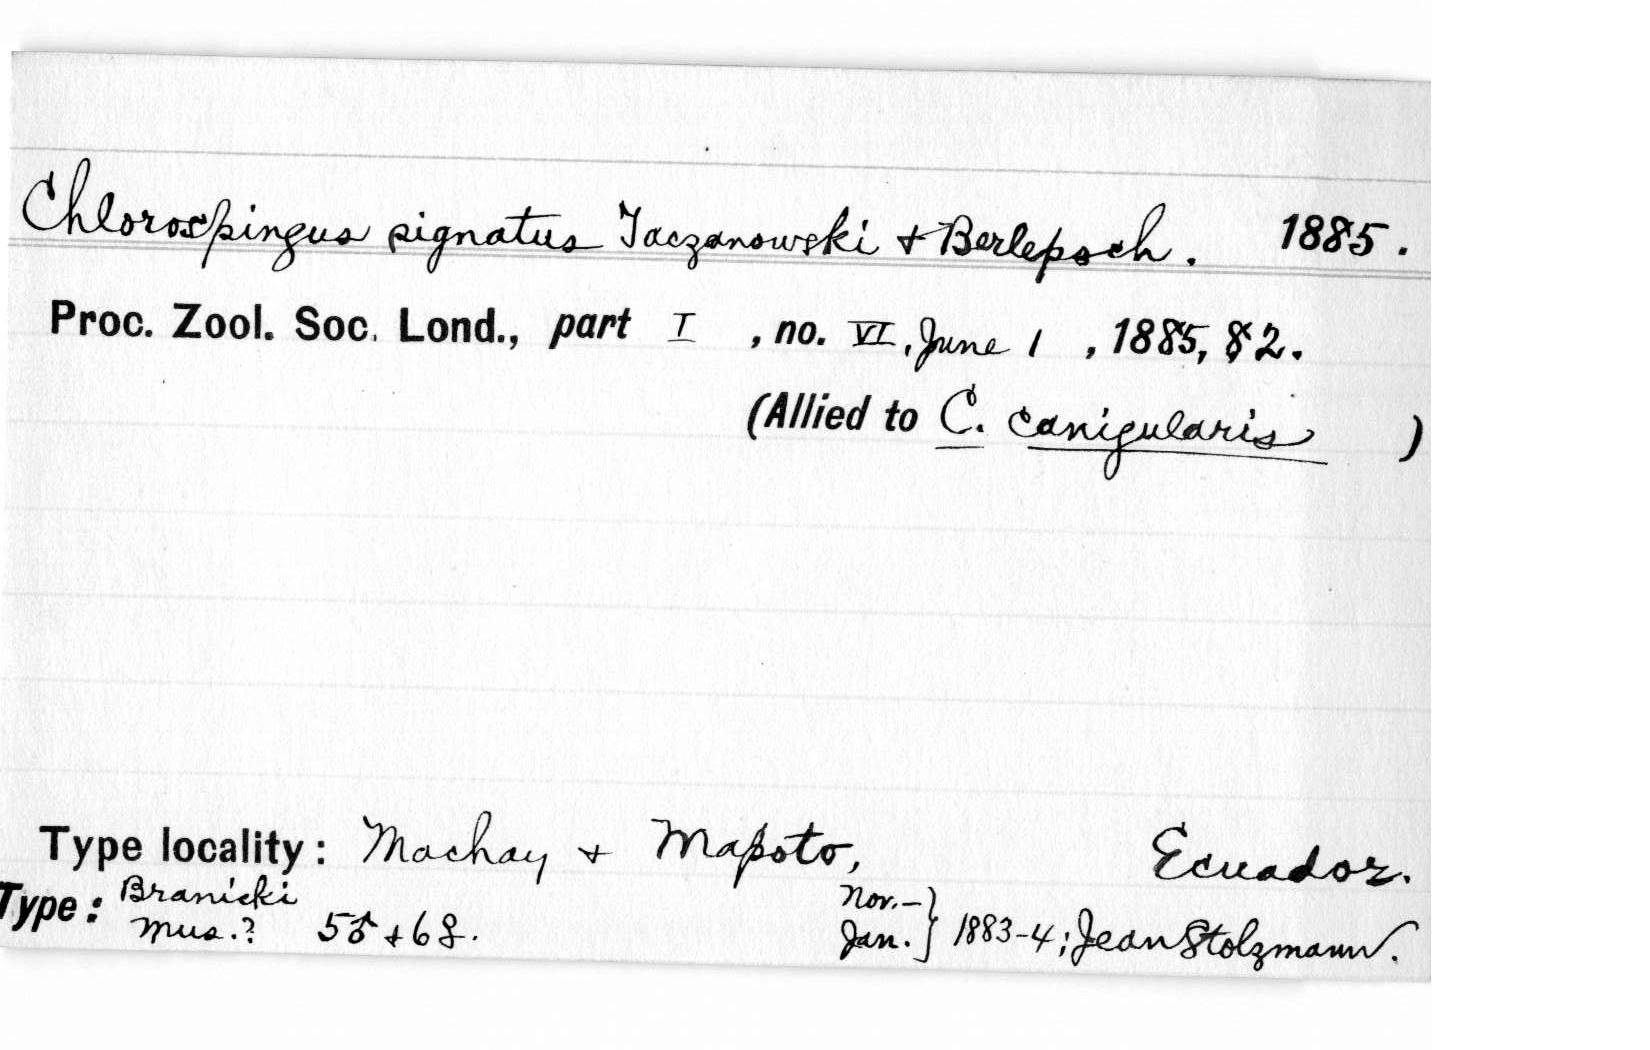 Chlorospingus signatus Taczanowski + Berlepsch. 1885.
Proc. Zool. Soc. Lond., part I , no. VI, June 1 , 1885, 82.
(Allied to C. canigularis )
Type locality: Machay + Mapoto, Ecuador.
Type: Branicki Mus.? 5♂ + 6♀. Nov.– Jan. } 1883-4; Jean Stolzmann.